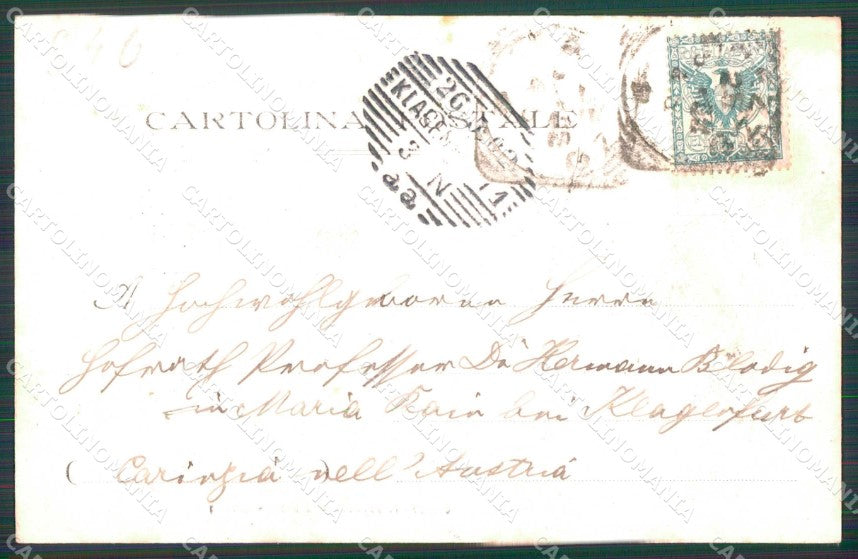 846
CARTOLINA POSTALE
KLAGENFURT
26
3 N
a.a
A Hochwohlgeboren Herrn
Hofrath Professor Dr Hermann Blodig
in Maria Rain bei Klagenfurt
(Carinzia nell'Austria